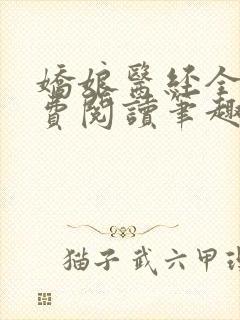 嬌娘醫經全
費閱讀筆趣
猫子武六甲